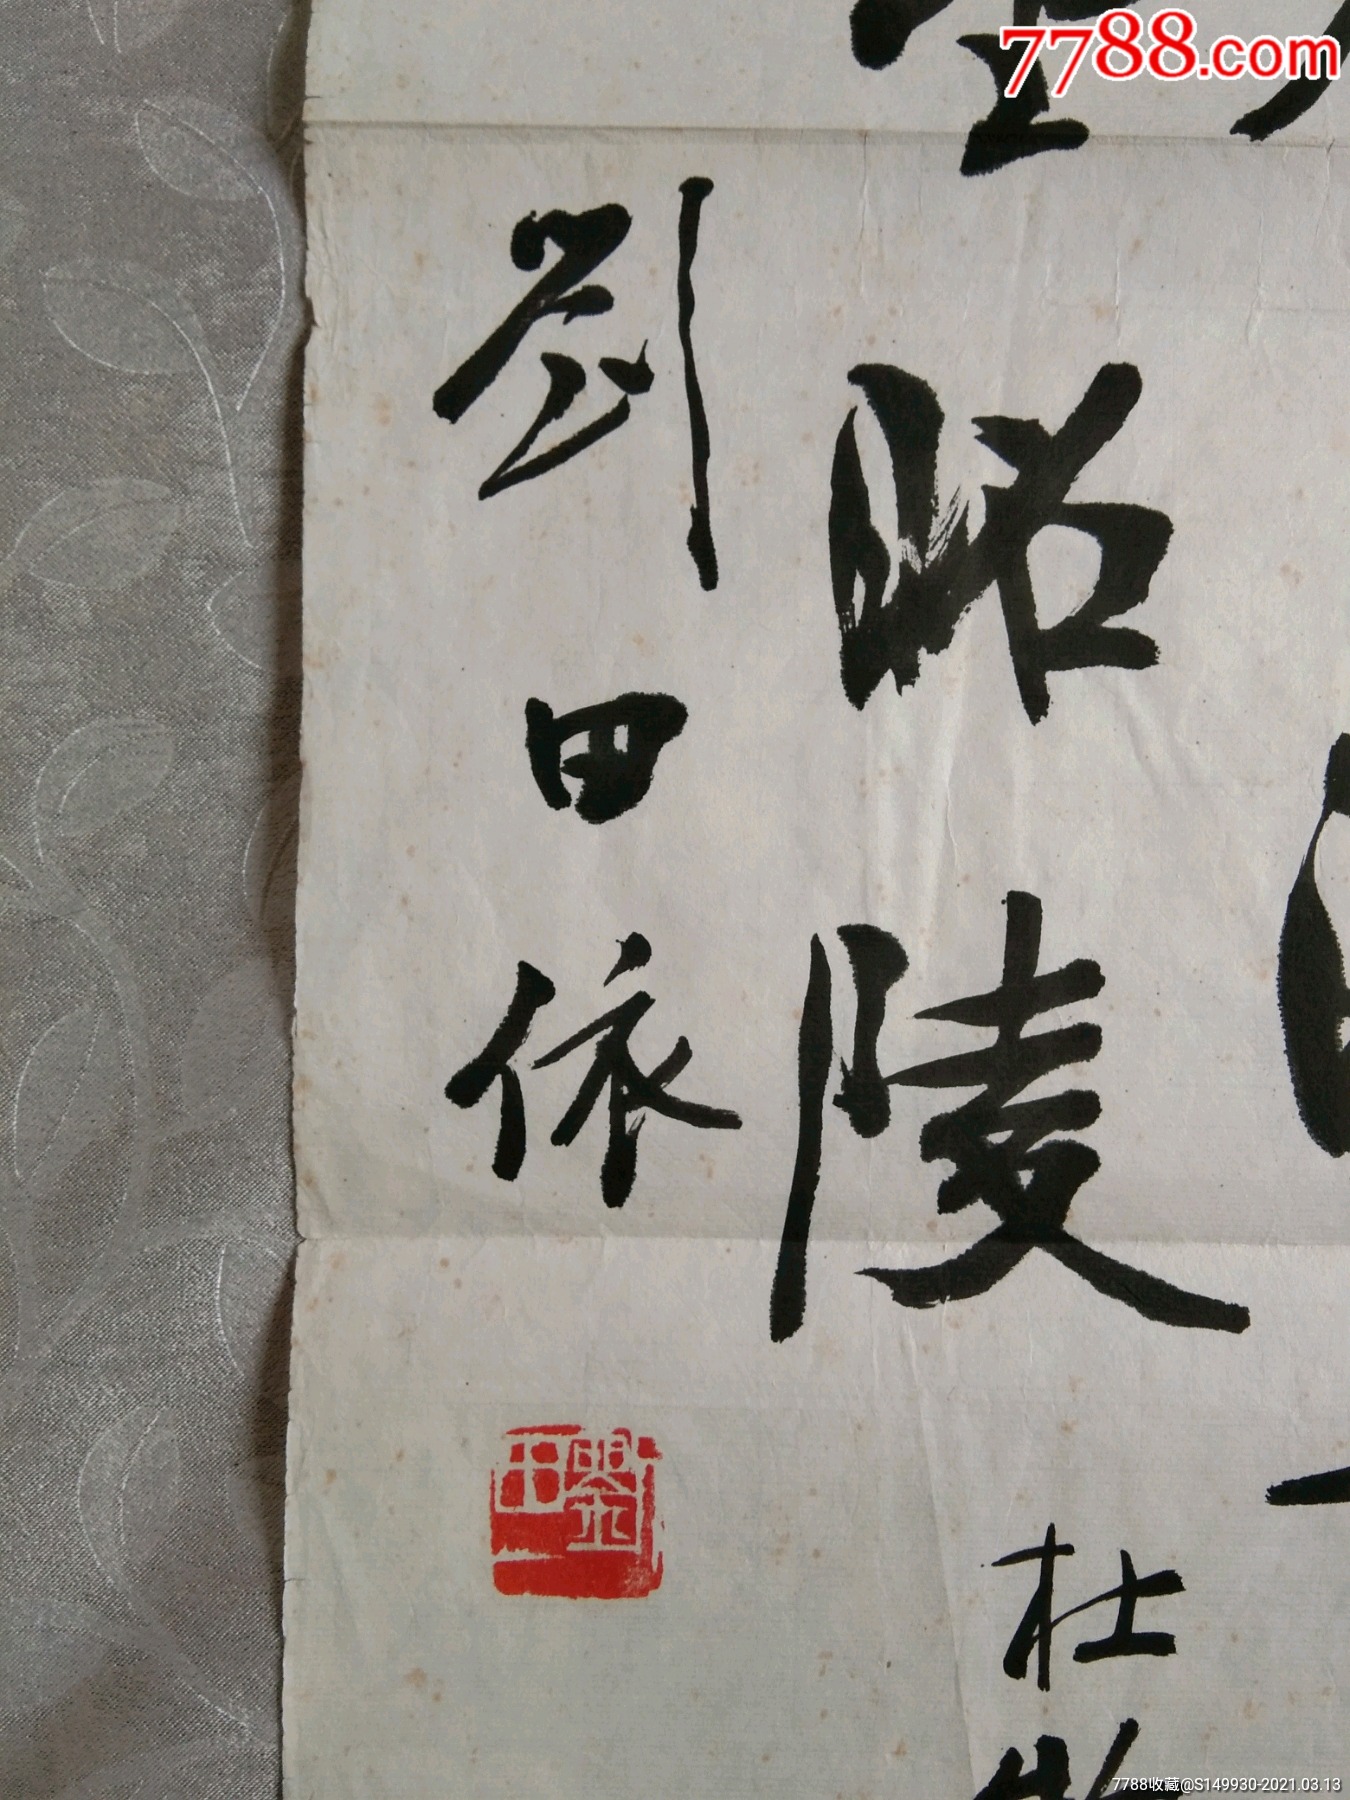 7788.com
望昭陵
杜牧
劉田依
7788收藏@S149930-2021.03.13